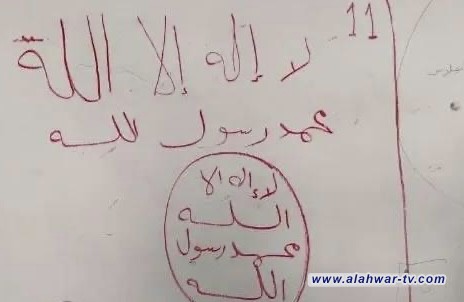 11
لا إله إلا اللة
محمد رسول الله
لا إله الا
الله
محمد رسول
الله
www.alahwar-tv.com